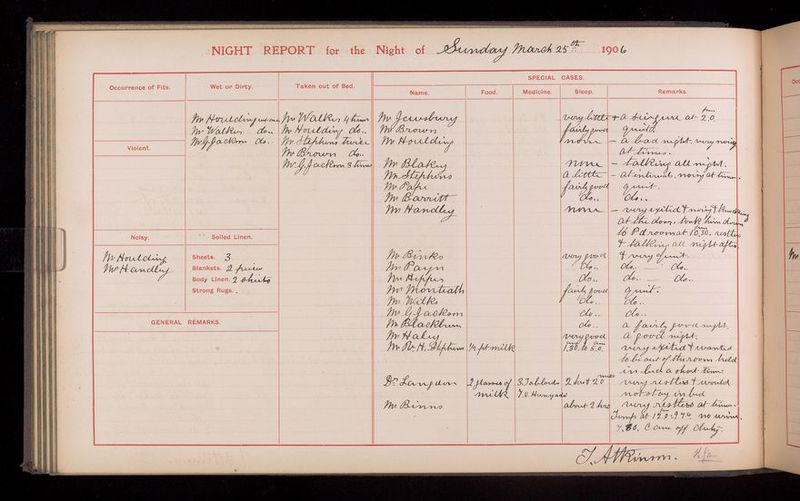 NIGHT REPORT for the Night of Sunday March 25th 1906
SPECIAL CASES.
Occurrence of Fits. Wet or Dirty. Taken out of Bed. Name. Food. Medicine. Sleep. Remarks.
Mr Houlding Mr Walker 4 times Mr Jewsbury very little + a seizure at 2.0
Mr Walker do.. Mr Houlding do.. Mr Brown fairly good quiet
Mr J. Jackson do. Mr Stephens twice Mr Houlding none - a bad night, very noisy
Violent. Mr Brown do.. at times.
Mr J. Jackson 3 times Mr Blakey none - talking all night.
Mr Stephens a little - at intervals, noisy at times.
Mr Pape fairly good quiet.
Mr Barritt do.. do..
Mr Handley none - very excited & noisy &
at the door, took him down
Noisy. Soiled Linen. to P d room at 10.30. restless
& talking all night after
Mr Houlding Sheets. 3 Mr Binks very good & very quiet.
Mr Handley Blankets. 2 pieces Mr Payn do.. do. do..
Body Linen. 2 shirts Mr do.. do.. do..
Strong Rugs. Mr Monteath fairly good quiet.
Mr Wilks do.. do..
Mr G. Jackson do.. do..
GENERAL REMARKS. Mr Blackburn do.. a fairly good night.
Mr Haley very good a good night.
Mr R. H. Stephens ½ pt milk 1.30. to 5.0. very excited & wanted
to be out of the room held
in bed a short time
Dr Langdon 2 glasses of milk 2 hrs & 20 very restless & would
not stay in bed
Mr Binns about 2 hrs very restless at times.
Temp at 12.0 97.4 no urine.
7.30. Came off duty.
T. Atkinson.